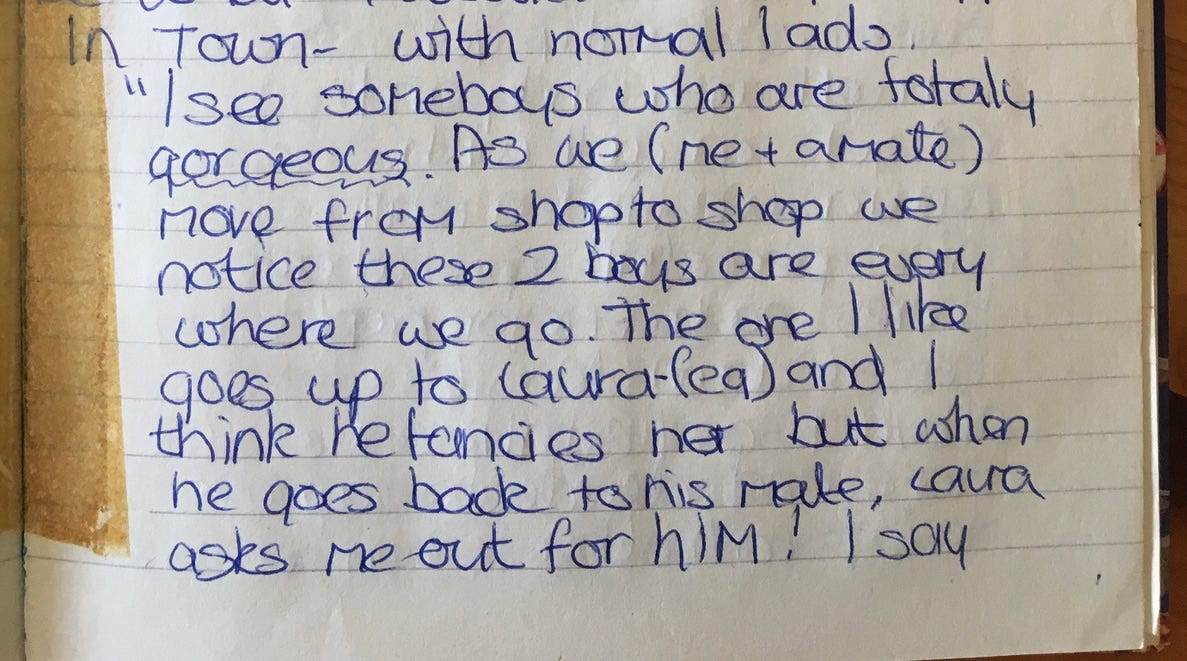 In Town- with normal lads.
"I see some boys who are totaly
gorgeous. As we (me + a mate)
move from shop to shop we
notice these 2 boys are every
where we go. The one I like
goes up to Laura-(eg) and I
think he fancies her but when
he goes back to his mate, Laura
asks me out for hIM! I say